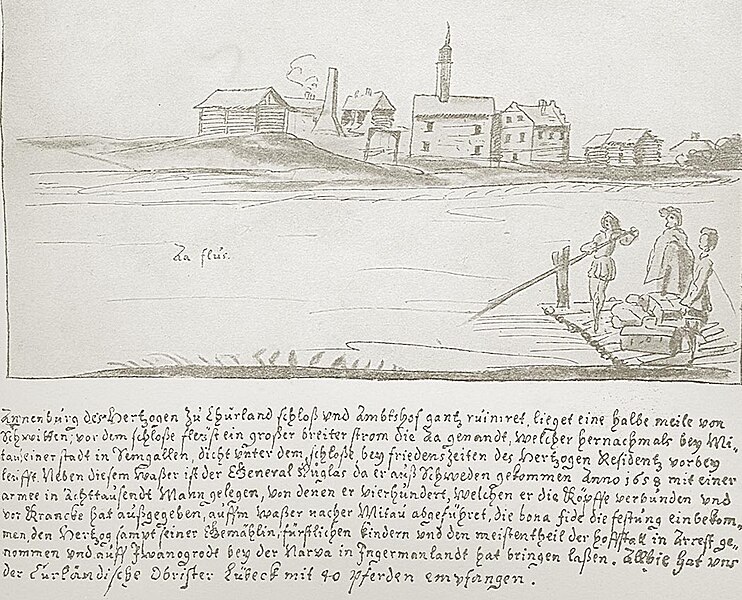 Aa flus.
Annenburg des Hertzogen Zu Churland schloß vnd Ambtshof gantz ruiniret, lieget eine halbe meile von
Schwitten; vor dem schloße fleust ein großer breiter strom die Aa genandt, welcher hernachmals bey Mi-
tau, einer stadt in Semgallen, dicht unter dem schloße, bey friedenszeiten des Hertzogen Residentz vorbey
leufft. Neben diesem Waßer ist der General Duglas da er auß Schweden gekommen Anno 1658 mit einer
armee in Achttausendt Mann gelegen, von denen er vierhundert, welchen er die Köpffe verbunden und
vor Krancke hat außgegeben, auffm Waßer nacher Mitau abgeführet, die bona fide die festung einbekom-
men, den Hertzog sampt seiner Gemählin, fürstlichen kindern und den meistentheil der hoffstatt in Arrest ge-
nommen und auff Iwanogrodt bey der Narva in Ingermanlandt hat bringen laßen. Allhie hat vns
der Curländische Obrister Lübeck mit 40 pferden empfangen.